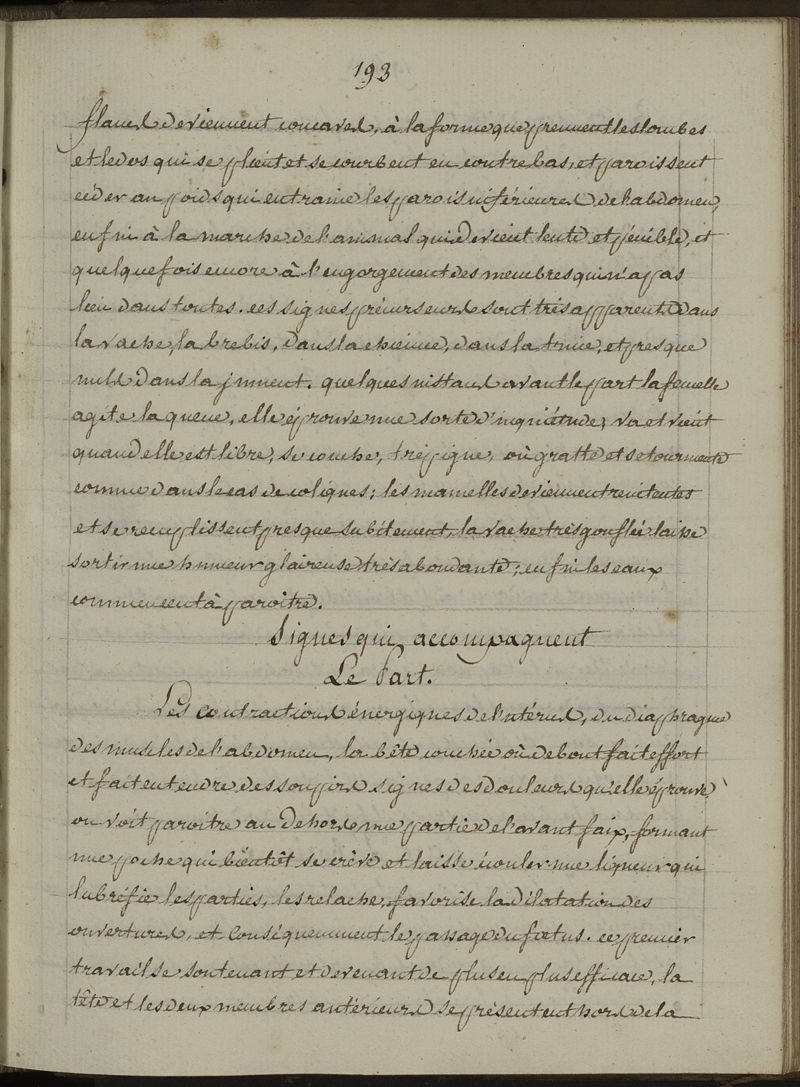 193
flancs deviennent concaves, à la forme que prennent les lombes
et le dos qui se plient et se courbent en contre bas, et paroissent
céder au poids qui entraine les parois inférieures de l'abdomen,
enfin à la marche de l'animal qui devient lente et pénible, et
quelque fois encore à l'engorgement des membres qui n'a pas
lieu dans toutes. ces signes précurseurs sont très apparents dans
la vache, la brebis, dans la chienne, dans la truie, et presque
nuls dans la jument. quelques instans avant le part la femelle
agite la queue, elle éprouve une sorte d'inquiétude, va et vient
quand elle est libre, se couche, trépigne, où gratte et se tourmente
comme dans le cas de coliques; les mamelles deviennent rénitentes
et se remplissent presque subitement, la vache très gonflée laisse
sortir une humeur glaireuse très abondante; enfin les eaux
commencent à paroitre.
Signes qui accompagnent
Le Part.
Les contractions énergiques de l'utérus, du diaphragme
des muscles de l'abdomen, la bête couchée où debout fait effort
et fait entendre des soupirs signes des douleurs qu'elle éprouve
on voit paroitre au dehors une partie de l'avant faix, formant
une poche qui bientôt se crève et laisse écouler une liqueur qui
lubréfie les parties, les relache, favorise la dilatation des
ouvertures, et conséquemment le passage du fœtus. ce premier
travail se soutenant et devenant de plus en plus efficace, la
tête et les deux membres antérieurs se présentent hors de la